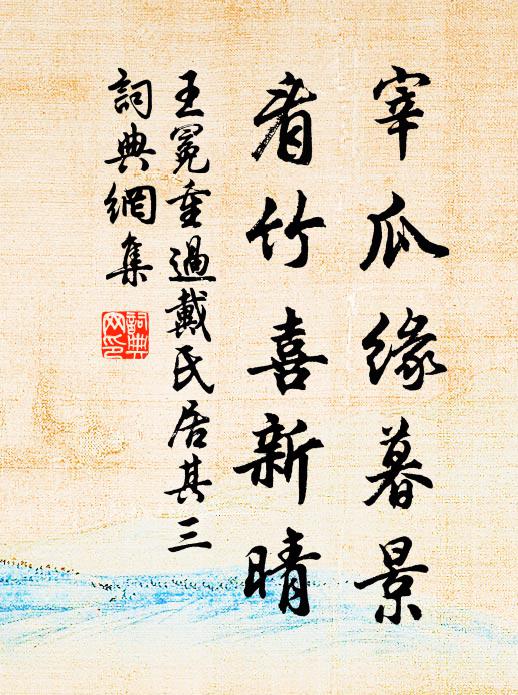 宰瓜緣暮景
看竹喜新晴
王冕重過戴氏居其三
詞典網集
詞典網印